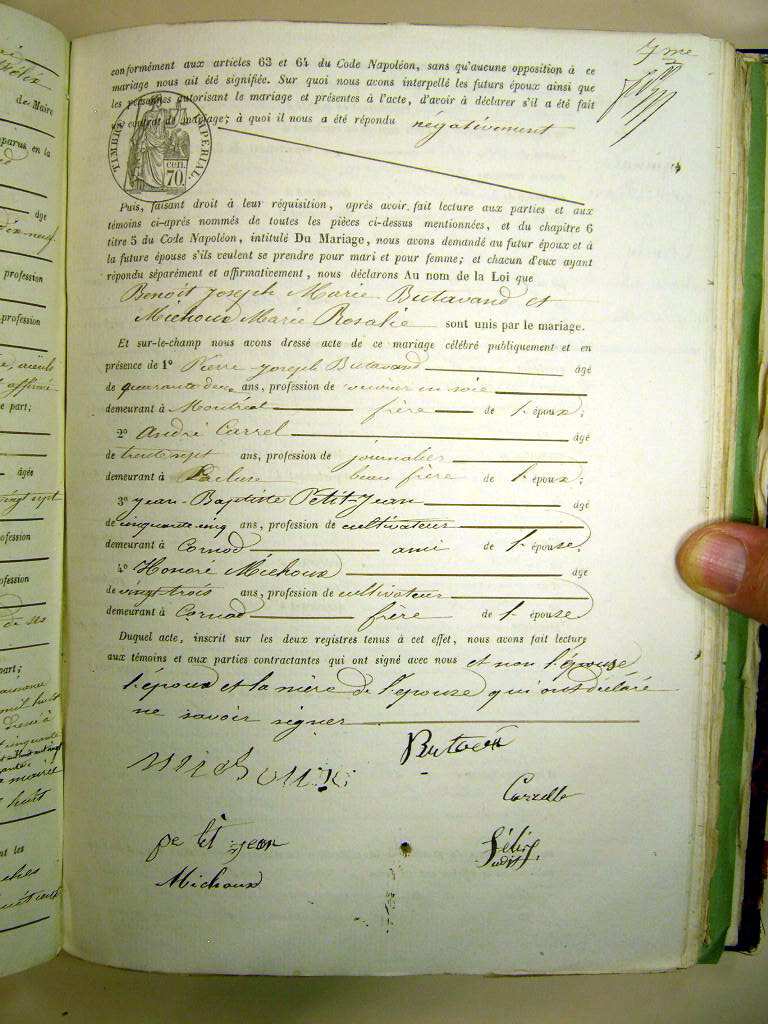 7me
conformément aux articles 63 et 64 du Code Napoléon, sans qu'aucune opposition à ce
mariage nous ait été signifiée. Sur quoi nous avons interpellé les futurs époux ainsi que
les personnes autorisant le mariage et présentes à l'acte, d'avoir à déclarer s'il a été fait
un contrat de mariage; à quoi il nous a été répondu négativement
TIMBRE IMPERIAL
70 cen.
Puis, faisant droit à leur réquisition, après avoir fait lecture aux parties et aux
témoins ci-après nommés de toutes les pièces ci-dessus mentionnées, et du chapitre 6
titre 5 du Code Napoléon, intitulé Du Mariage, nous avons demandé au futur époux et à
la future épouse s'ils veulent se prendre pour mari et pour femme; et chacun d'eux ayant
répondu séparément et affirmativement, nous déclarons Au nom de la Loi que
Benoit Joseph Marie Butavand et
Michoux Marie Rosalie sont unis par le mariage.
Et sur-le-champ nous avons dressé acte de ce mariage célébré publiquement et en
présence de 1° Pierre Joseph Butavand âgé
de quarante deux ans, profession de ouvrier en soie
demeurant à Montréal frère de l'époux;
2° André Carrel âgé
de trente sept ans, profession de journalier
demeurant à beau frère de l'époux;
3° Jean-Baptiste Petit-Jean âgé
de cinquante cinq ans, profession de cultivateur
demeurant à Cornod ami de l'épouse
4° Honoré Michoux âgé
de vingt trois ans, profession de cultivateur
demeurant à Cornod frère de l'épouse
Duquel acte, inscrit sur les deux registres tenus à cet effet, nous avons fait lecture
aux témoins et aux parties contractantes qui ont signé avec nous et non l'épouse
l'époux et la mère de l'épouse qui ont déclaré
ne savoir signer
michoux
Carrelle
petit jean
Michoux
de Maire
en la
âgé
profession
profession
part;
âgée
vingt sept
profession
part;
huit